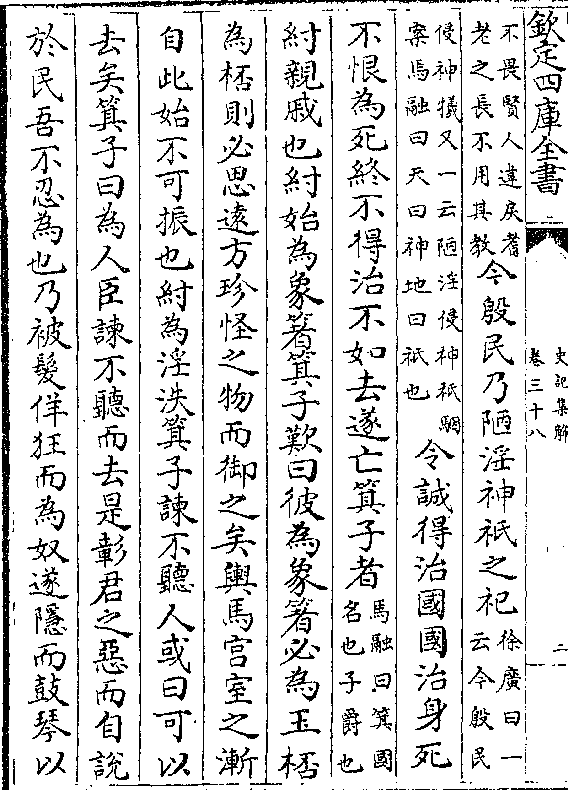 欽定四庫全書
史記集解
卷三十八
二
不畏賢人違戾耆
老之長不用其教
今殷民乃陋淫神祇之祀
徐廣曰一
云今殷民
侵神犧又一云陋淫侵神祇駰
案馬融曰天曰神地曰祇也
今誠得治國國治身死
不恨為死終不得治不如去遂亡箕子者
馬融曰箕國
名也子爵也
紂親戚也紂始為象箸箕子歎曰彼為象箸必為玉桮
為桮則必思遠方珍怪之物而御之矣輿馬宮室之漸
自此始不可振也紂為淫泆箕子諫不聽人或曰可以
去矣箕子曰為人臣諫不聽而去是彰君之惡而自說
於民吾不忍為也乃被髮佯狂而為奴遂隱而鼓琴以